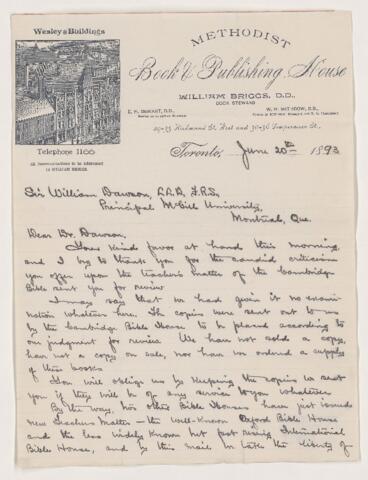 Wesley Buildings
METHODIST
Book & Publishing House
WILLIAM BRIGGS, D.D.,
BOOK STEWARD
E. H. DEWART, D.D.,
W. H. WITHROW, D.D.,
29-33 Richmond St. West and 30-36 Temperance St.,
Telephone 1166
All Communications to be addressed
to WILLIAM BRIGGS.
Toronto, June 20th 1893
Sir William Dawson, LL.D., F.R.S.,
Principal McGill University,
Montreal, Que.
Dear Dr. Dawson,
Your kind favor at hand this morning,
and I beg to thank you for the candid criticism
you offer upon the teacher's matter of the Cambridge
Bible sent you for review.
I may say that we had given it no exami-
nation whatever here. The copies were sent out to us
by the Cambridge Bible House to be placed according to
our judgment for review. We have not sold a copy,
have not a copy on sale, nor have we ordered a supply
of these books.
You will oblige us by keeping the copies so sent
you if they will be of any service to you whatever.
By the way, two other Bible Houses have just issued
new Teachers Matter — the well-known Oxford Bible House
and the less widely known but fast rising International
Bible House, and by this mail we take the liberty of